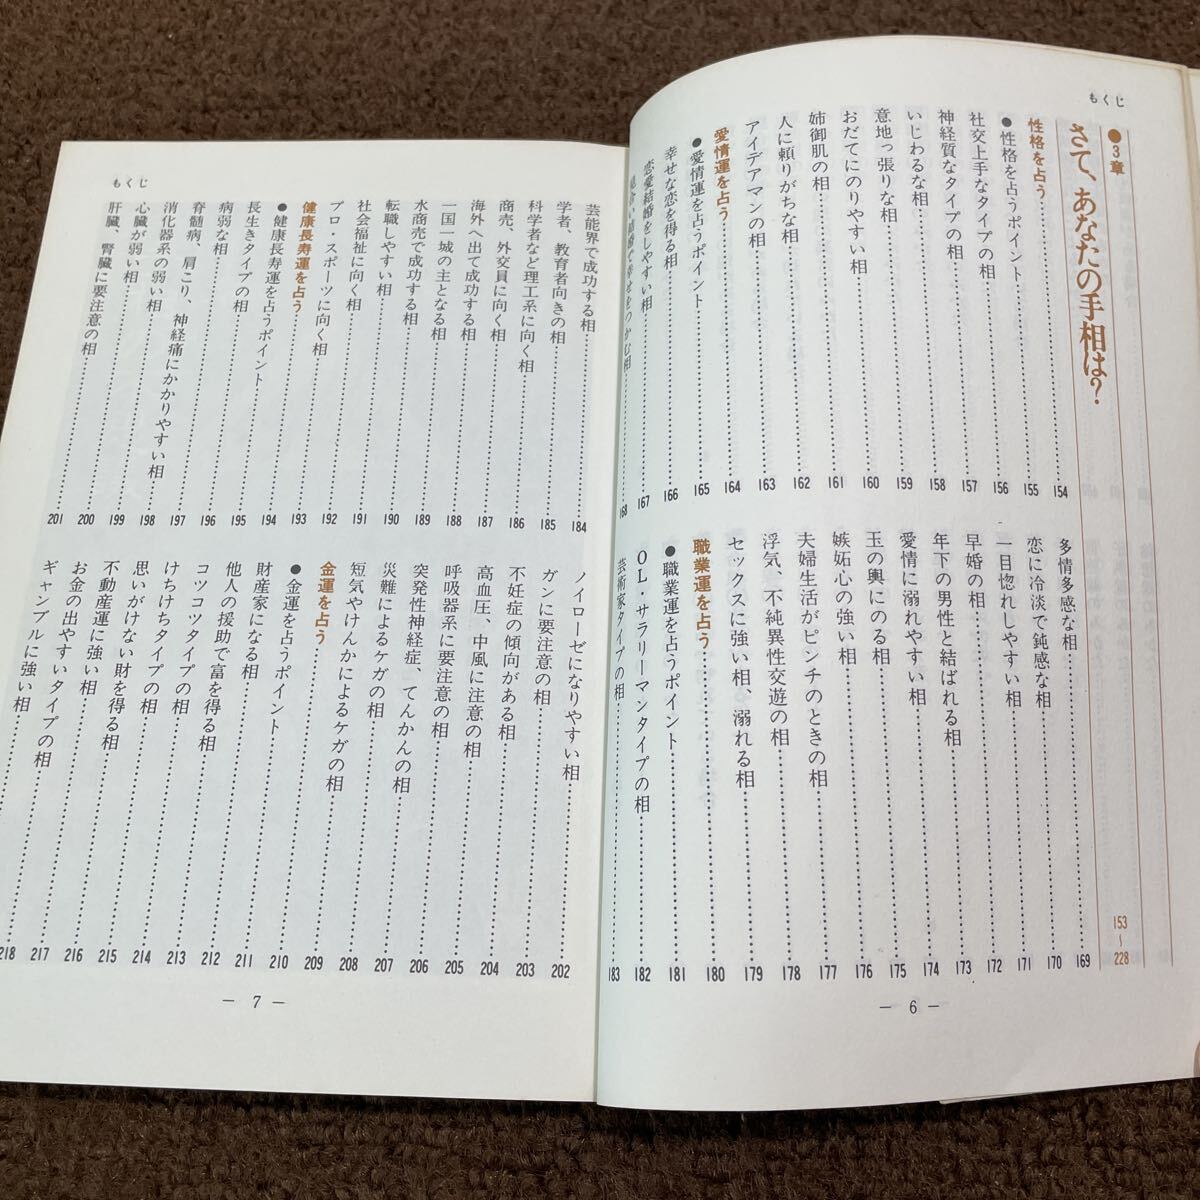 もくじ
●3章
さて、あなたの手相は？……153〜228
性格を占う……154
●性格を占うポイント……155
社交上手なタイプの相……156
神経質なタイプの相……157
いじわるな相……158
意地っ張りな相……159
おだてにのりやすい相……160
姉御肌の相……161
人に頼りがちな相……162
アイデアマンの相……163
愛情運を占う……164
●愛情運を占うポイント……165
幸せな恋を得る相……166
恋愛結婚をしやすい相……167
見合い結婚で幸せをつかむ相……168
多情多感な相……169
恋に冷淡で鈍感な相……170
一目惚れしやすい相……171
早婚の相……172
年下の男性と結ばれる相……173
愛情に溺れやすい相……174
玉の輿にのる相……175
嫉妬心の強い相……176
夫婦生活がピンチのときの相……177
浮気、不純異性交遊の相……178
セックスに強い相、溺れる相……179
職業運を占う……180
●職業運を占うポイント……181
OL・サラリーマンタイプの相……182
芸術家タイプの相……183
— 6 —
もくじ
芸能界で成功する相……184
学者、教育者向きの相……185
科学者など理工系に向く相……186
商売、外交員に向く相……187
海外へ出て成功する相……188
一国一城の主となる相……189
水商売で成功する相……190
転職しやすい相……191
社会福祉に向く相……192
プロ・スポーツに向く相……193
健康長寿運を占う……194
●健康長寿運を占うポイント……195
長生きタイプの相……196
病弱な相……197
脊髄病、肩こり、神経痛にかかりやすい相……198
消化器系の弱い相……199
心臓が弱い相……200
肝臓、腎臓に要注意の相……201
ノイローゼになりやすい相……202
ガンに要注意の相……203
不妊症の傾向がある相……204
高血圧、中風に注意の相……205
呼吸器系に要注意の相……206
突発性神経症、てんかんの相……207
災難によるケガの相……208
短気やけんかによるケガの相……209
金運を占う……210
●金運を占うポイント……211
財産家になる相……212
他人の援助で富を得る相……213
コツコツタイプの相……214
けちけちタイプの相……215
思いがけない財を得る相……216
不動産運に強い相……217
お金の出やすいタイプの相……218
ギャンブルに強い相……
— 7 —